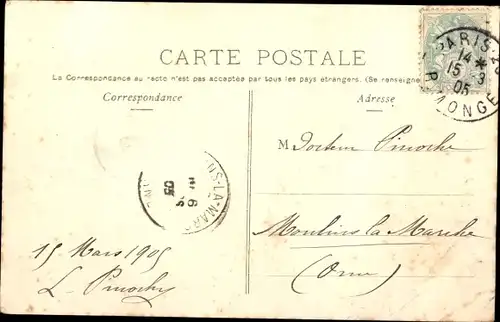 CARTE POSTALE
La Correspondance au recto n'est pas acceptée par tous les pays étrangers. (Se renseigne
Correspondance
Adresse
PARIS
14 *
15 - 3
05
R. MONGE
M Docteur Pinoche
Moulins la Marche
(Orne)
NS-LA-MAR
6
05
15 Mars 1905
L. Pinoche